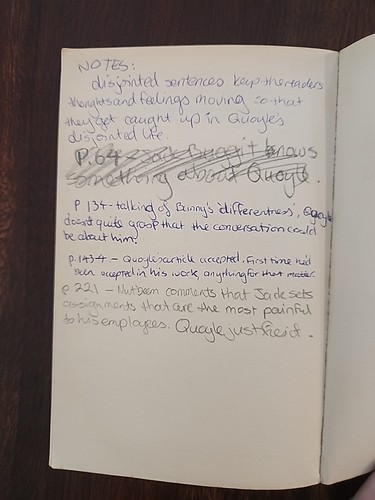 NOTES:
disjointed sentences keep the readers
thoughts and feelings moving so that
they get caught up in Quoyle's
disjointed life.
P.64 - Jack Buggit knows
something about Quoyle.
P 134 - talking of Bunny's 'differentness', Quoyle
doesn't quite grasp that the conversation could
be about him?
p. 143-4 - Quoyle's article accepted. First time he'd
been accepted in his work, anything for that matter.
p 221 - Nutbeem comments that Jack sets
assignments that are the most painful
to his employees. Quoyle just